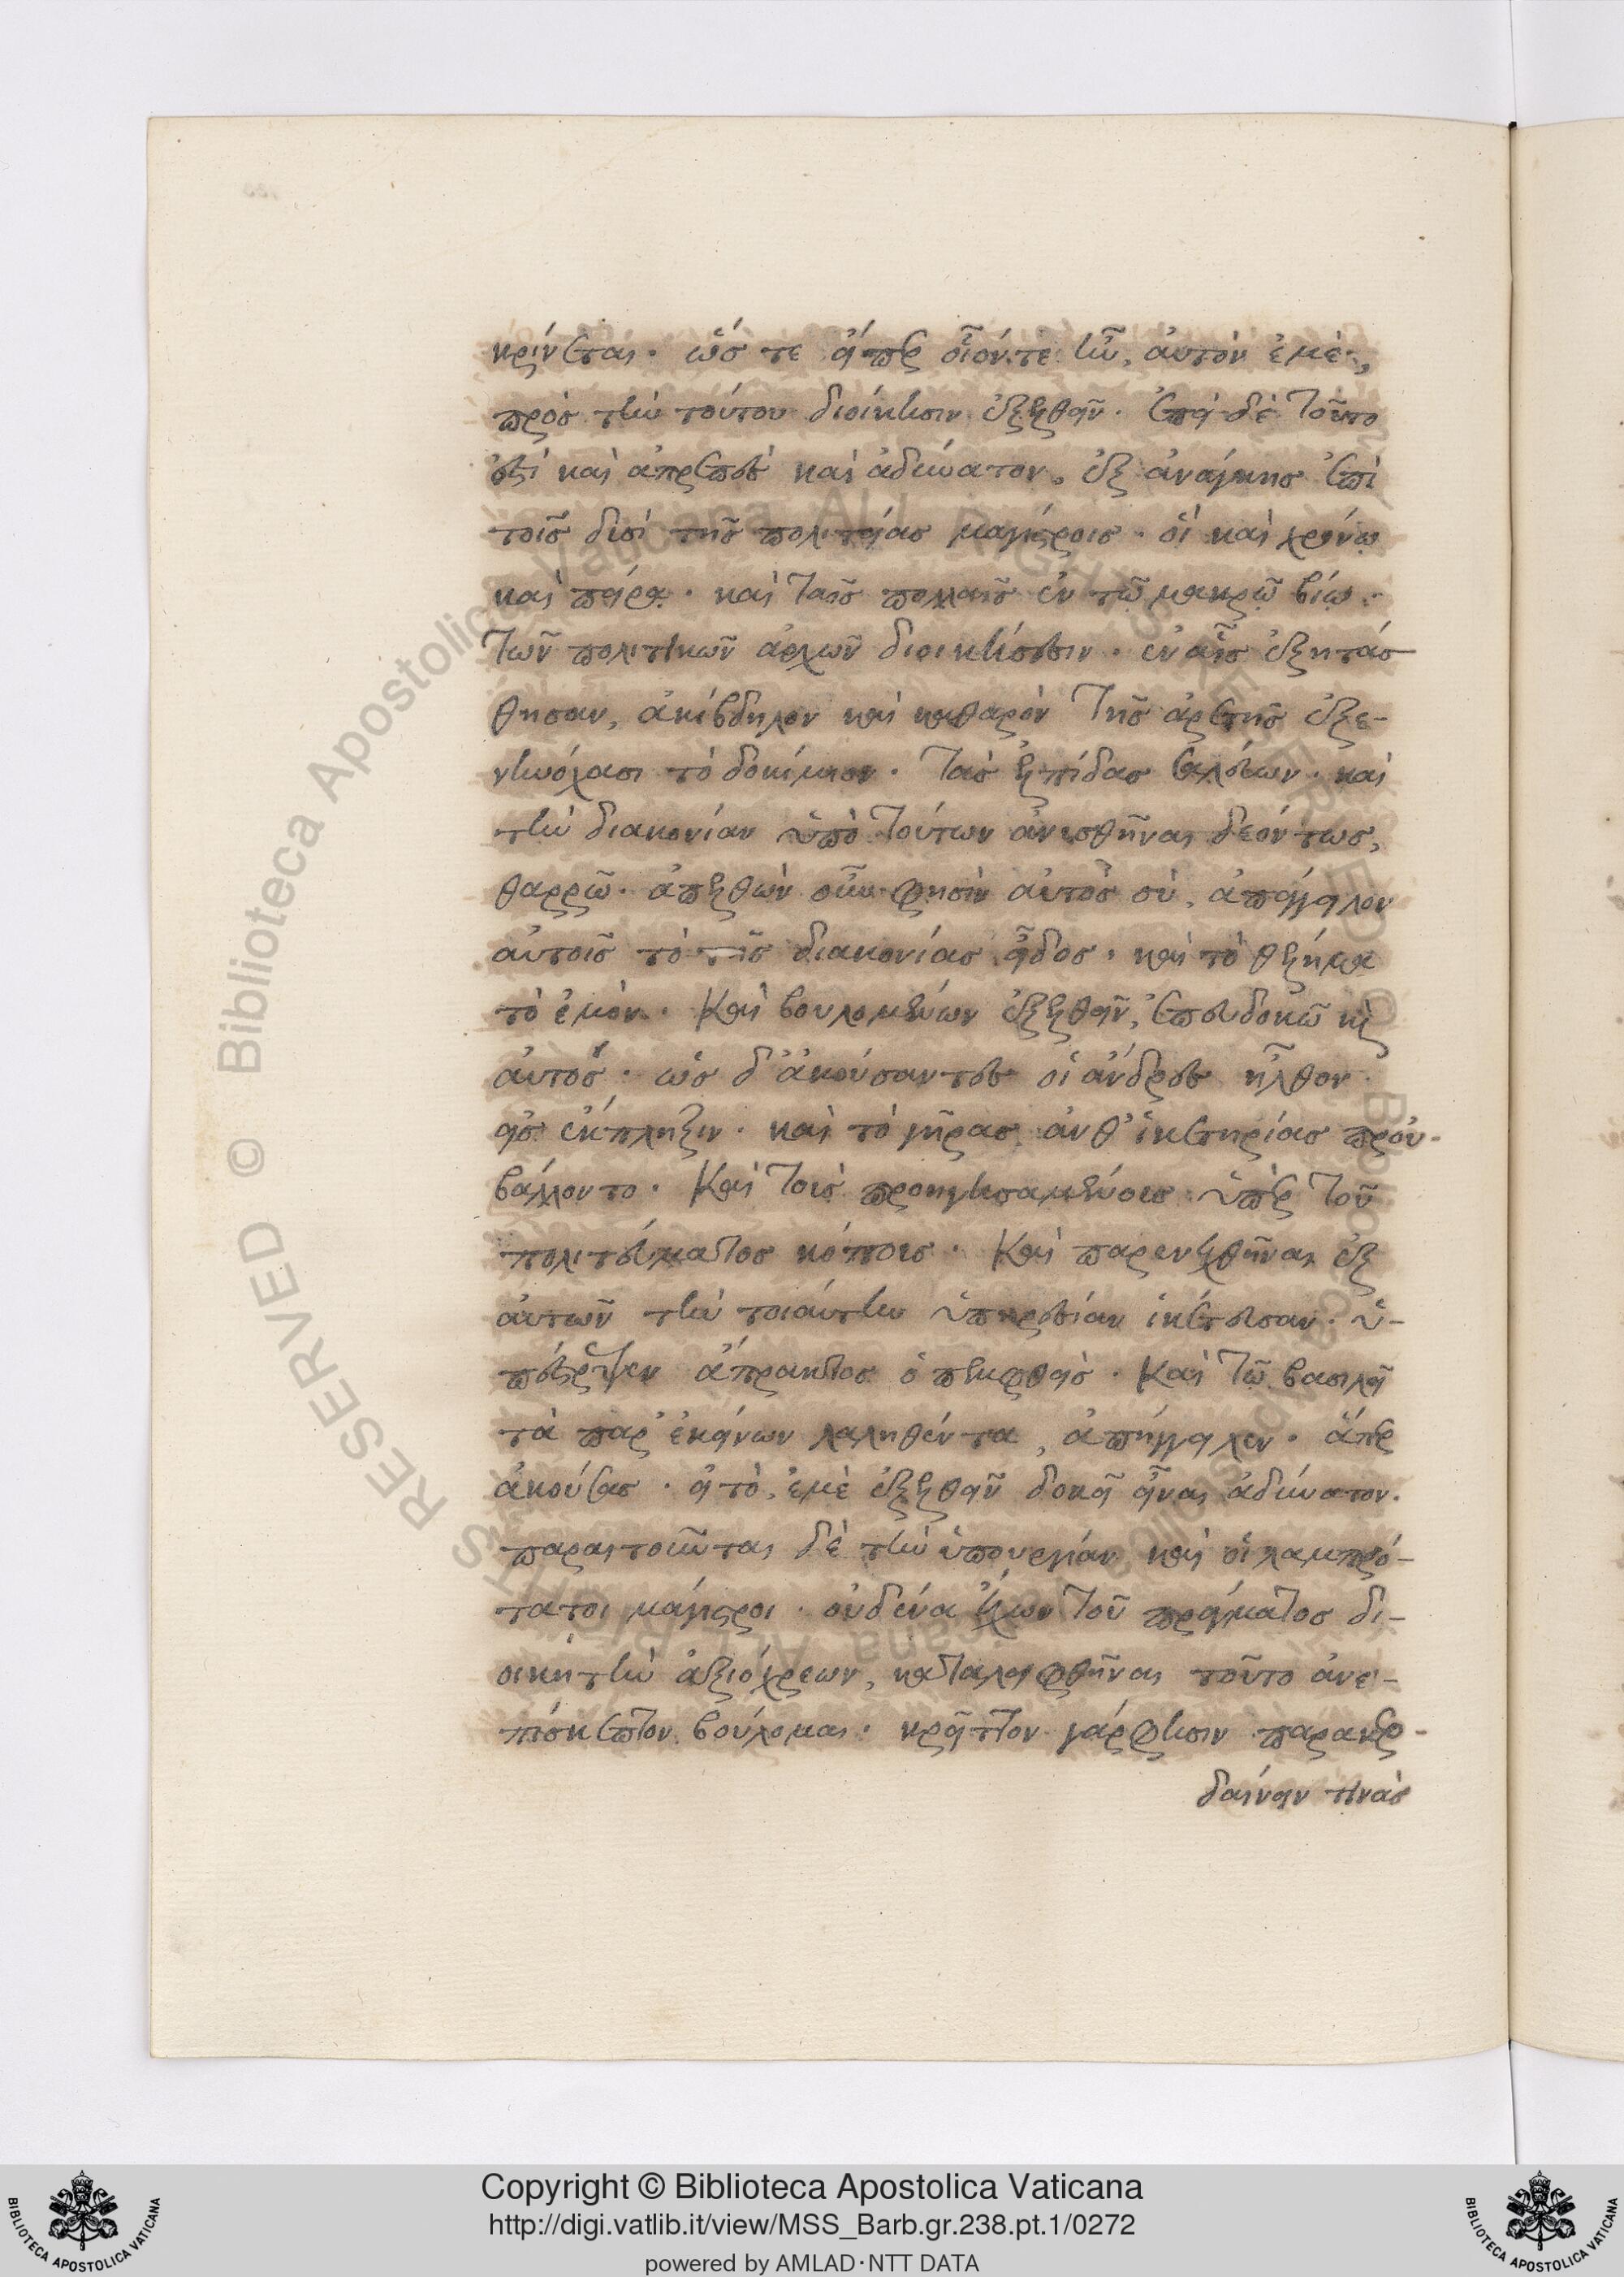 κρίνεται. ὥσ τε εἴπερ οἷόν τε ἦν, αὐτὸν ἐμὲ,
πρὸσ τὴν τούτου διοίκησιν ἐξελθεῖν. ἐπεὶ δὲ τοῦτο
ἐστὶ καὶ ἀπρεπὲς καὶ ἀδύνατον, ἐξ ἀνάγκησ ἐπὶ
τοῖσ δισὶ τῆσ πολιτείασ μαγίστροισ. οἳ καὶ χρόνω
καὶ πείρᾳ. καὶ ταῖσ πολλαῖσ ἐν τῶ μακρῶ βίω.
τῶν πολιτικῶν ἀρχῶν διοικήσεσιν. ἐν αἷσ ἐξητάσ
θησαν, ἀκίβδηλον καὶ καθαρὸν τῆσ ἀρετῆσ ἐξε-
νηνόχασι τὸ δοκίμιον. τὰσ ἐλπίδασ σαλεύων. καὶ
τὴν διακονίαν ὑπὸ τούτων ἀνυσθῆναι δεόντωσ,
θαρρῶ. ἀπελθὼν οὖν φησὶν αὐτὸσ σὺ, ἀπάγγειλον
αὐτοῖσ τὸ τῆσ διακονίασ εἶδοσ. καὶ τὸ θέλημα
τὸ ἐμὸν. καὶ βουλομένων ἐξελθεῖν, ἐπευδοκῶ κὶ
αὐτόσ. ὡσ δ' ἀκούσαντεσ οἱ ἄνδρεσ ἦλθον
εἰσ ἔκπληξιν. καὶ τὸ γῆρασ ἀνθ' ἱκετηρίασ προὐ-
βάλλοντο. καὶ τοῖσ προηγησαμένοισ ὑπὲρ τοῦ
πολιτεύματοσ κόποισ. καὶ παρενεχθῆναι ἐξ
αὐτῶν τὴν τοιαύτην ὑπηρεσίαν ἱκέτευσαν. ὑ-
πέστρεψεν ἄπρακτοσ ὁ πεμφθεὶσ. καὶ τῶ βασιλεῖ
τὰ παρ' ἐκείνων λαληθέντα, ἀπήγγειλεν. ἅπερ
ἀκούσασ. εἰ τὸ, ἐμὲ ἐξελθεῖν δοκεῖ εἶναι ἀδύνατον.
παραιτοῦνται δὲ τὴν ὑπουργίαν καὶ οἱ λαμπρό-
τατοι μάγιστροι. οὐδένα ἔχων τοῦ πράγματοσ δι-
οικητὴν ἀξιόχρεων, καταλειφθῆναι τοῦτο ἀνε-
πίσκεπτον βούλομαι. κρεῖττον γάρ φησιν παρανδρ-
δαίνειν τινὰσ